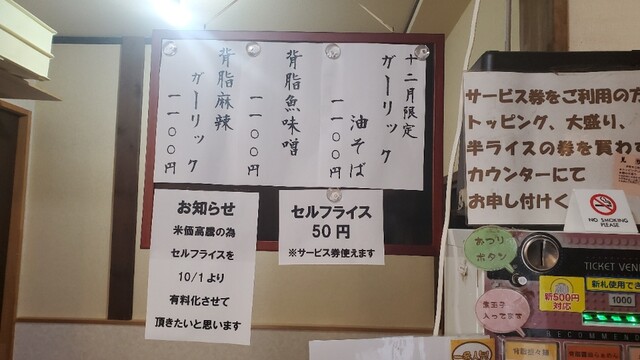 十二月限定
ガーリック
油そば
一一〇〇円
背脂魚味噌
一一〇〇円
背脂麻辣
ガーリック
一一〇〇円
お知らせ
米価高騰の為
セルフライスを
10/1より
有料化させて
頂きたいと思います
セルフライス
50円
※サービス券使えます
サービス券をご利用の方
トッピング、大盛り、
半ライスの券を買わず
カウンターにて
お申し付けく
NO SMOKING
PLEASE
おつり
ボタン
TICKET VEN
新札使用でき
新500円
対応
1000
煮玉子
入ってます
RECOMMEN